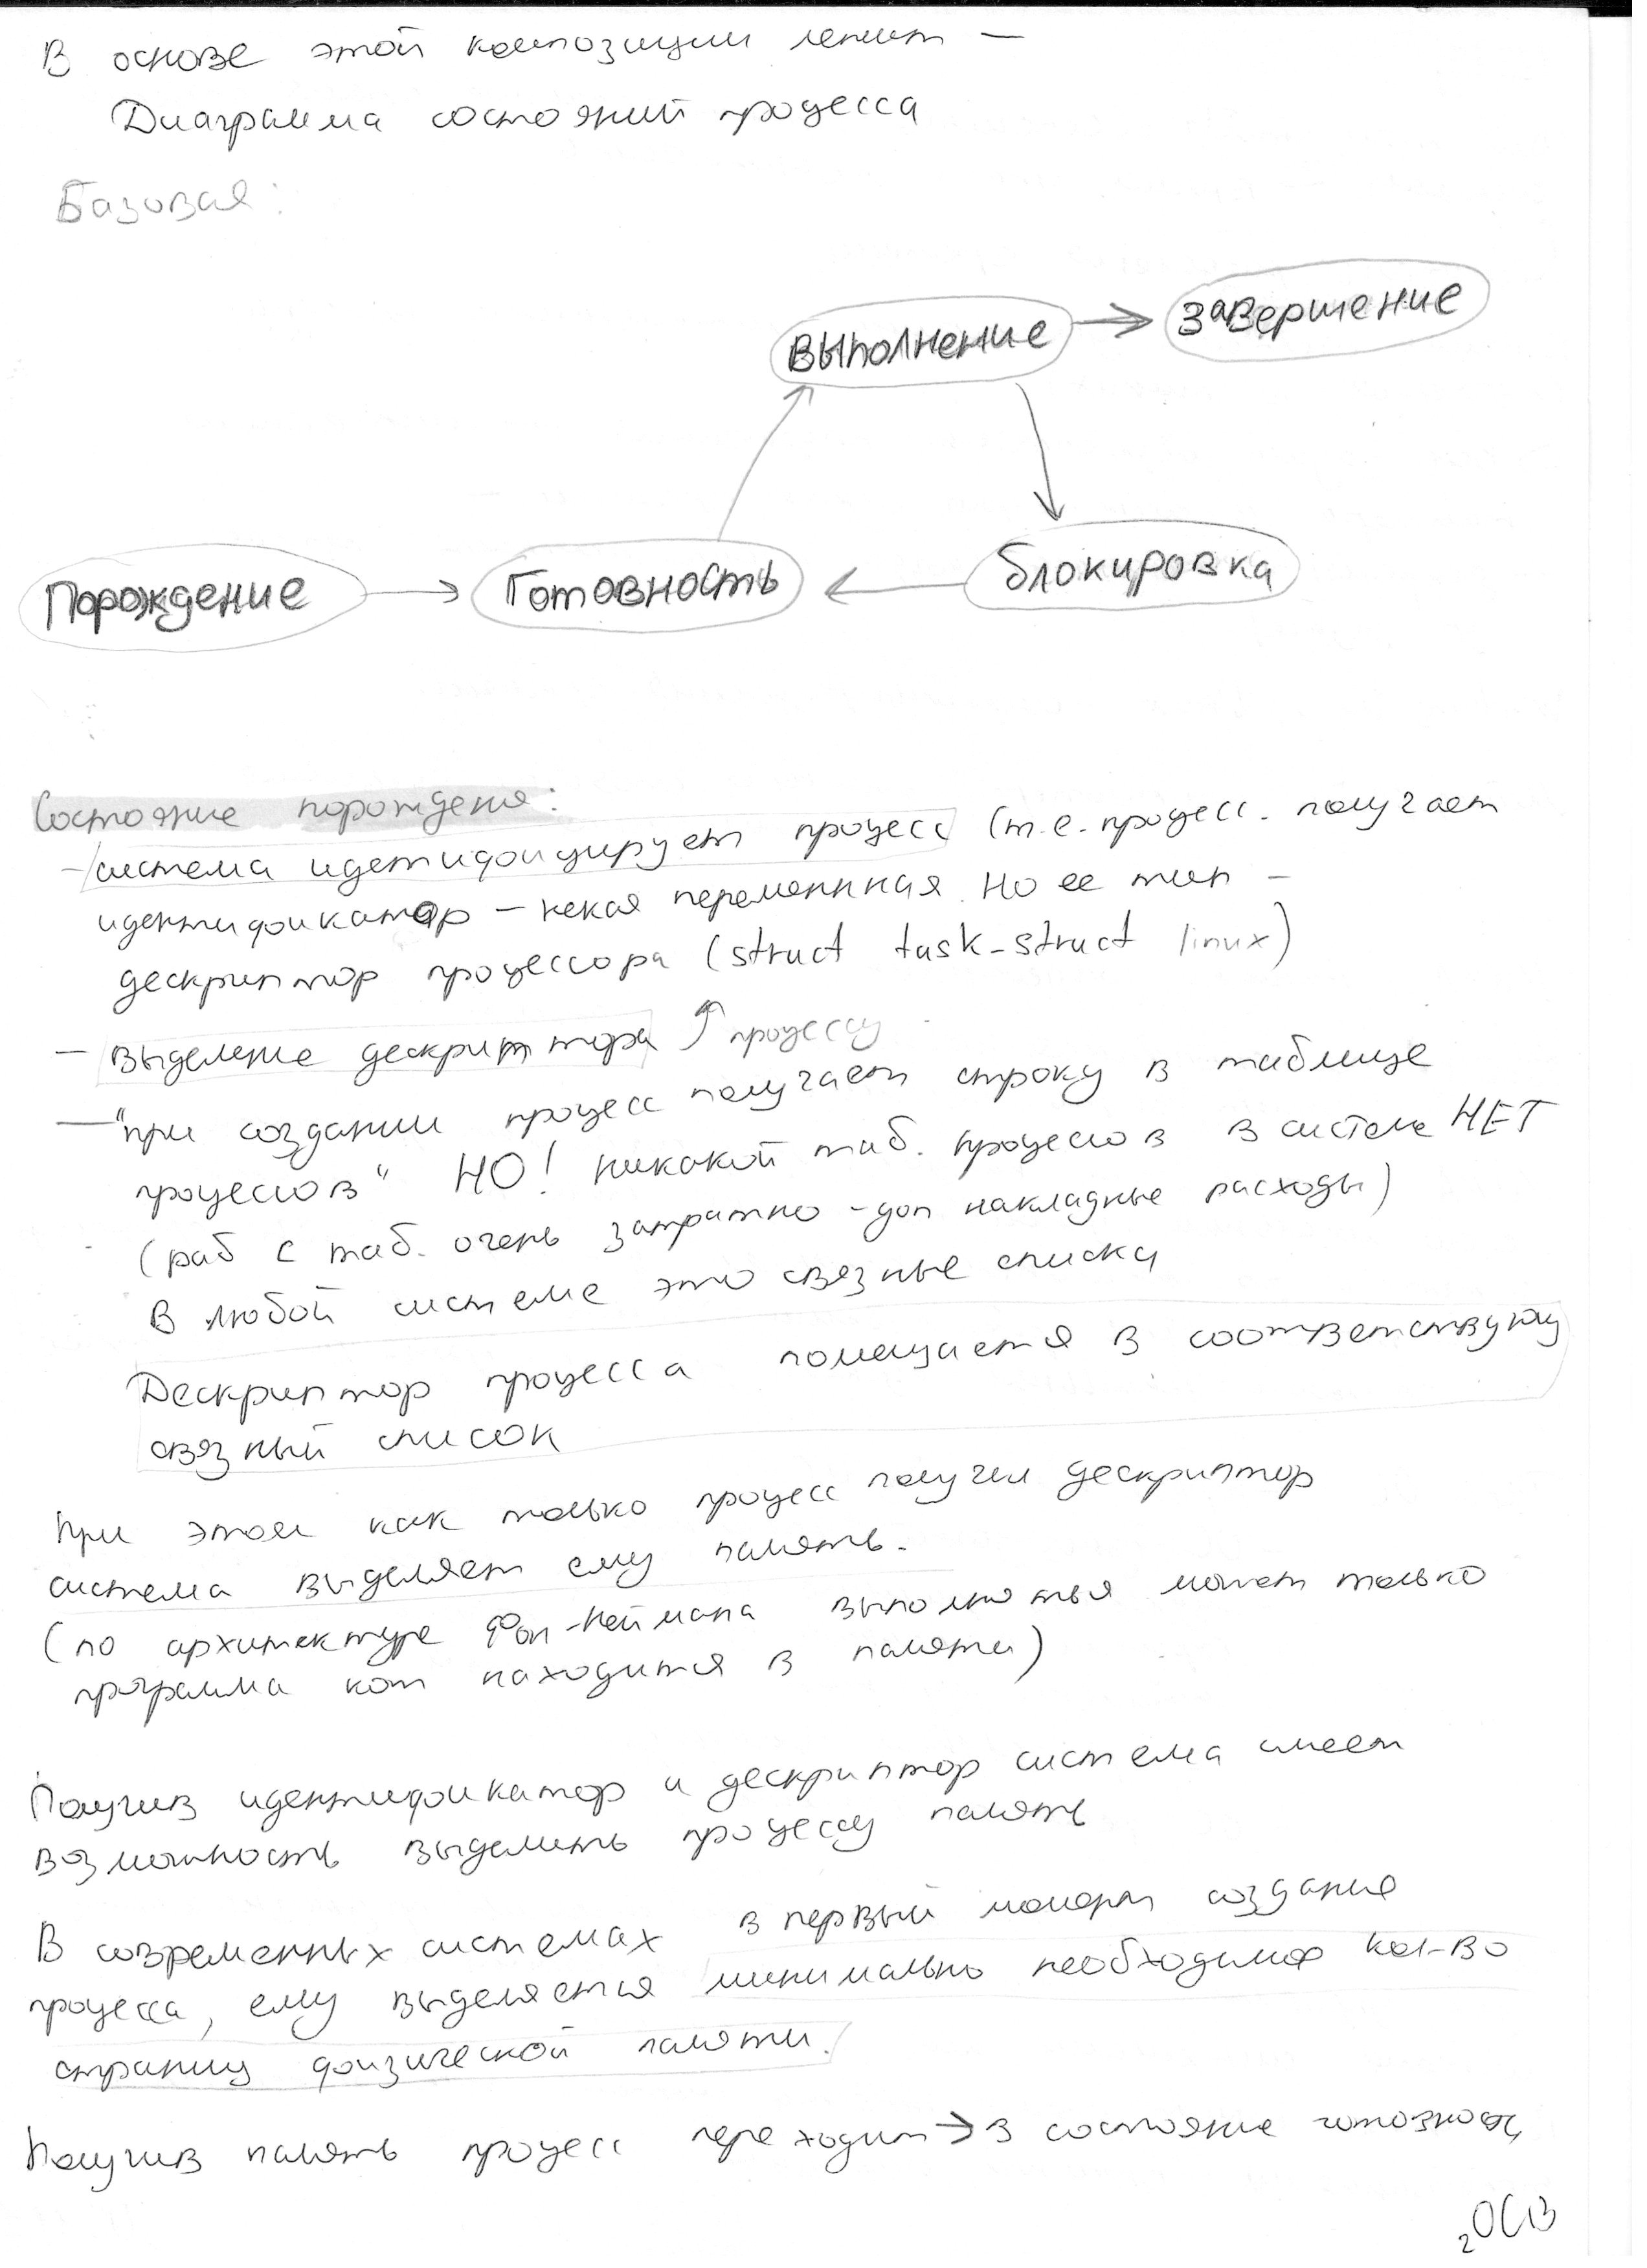 В основе этой композиции лежит —
Диаграмма состояний процесса
Базовая:
Выполнение
завершение
Порождение
Готовность
блокировка
Состояние порождения:
- система идетифицирует процесс (т.е. процесс. получает
идентификатор – некая переменнная. Но ее тип –
дескриптор процессора (struct task-struct linux)
– выделение дескриптора процессу
— "при создании процесс получает строку в таблице
процессов" НО! никакой таб. процессов в системе НЕТ
(раб с таб. очень затратно - доп накладные расходы)
В любой системе это связные списки
Дескриптор процесса помещается в соответствующ
связный список
При этом как только процесс получил дескриптор
система выделяет ему память.
(по архитектуре фон-Неймана выполняться может только
программа кот находится в памяти)
Получив идентификатор и дескриптор система имеет
возможность выделить процессу память
В современных системах в первый момент создания
процесса, ему выделяется минимально необходимое кол-во
страниц физической памяти.
Получив память процесс переходит → в состояние готовности